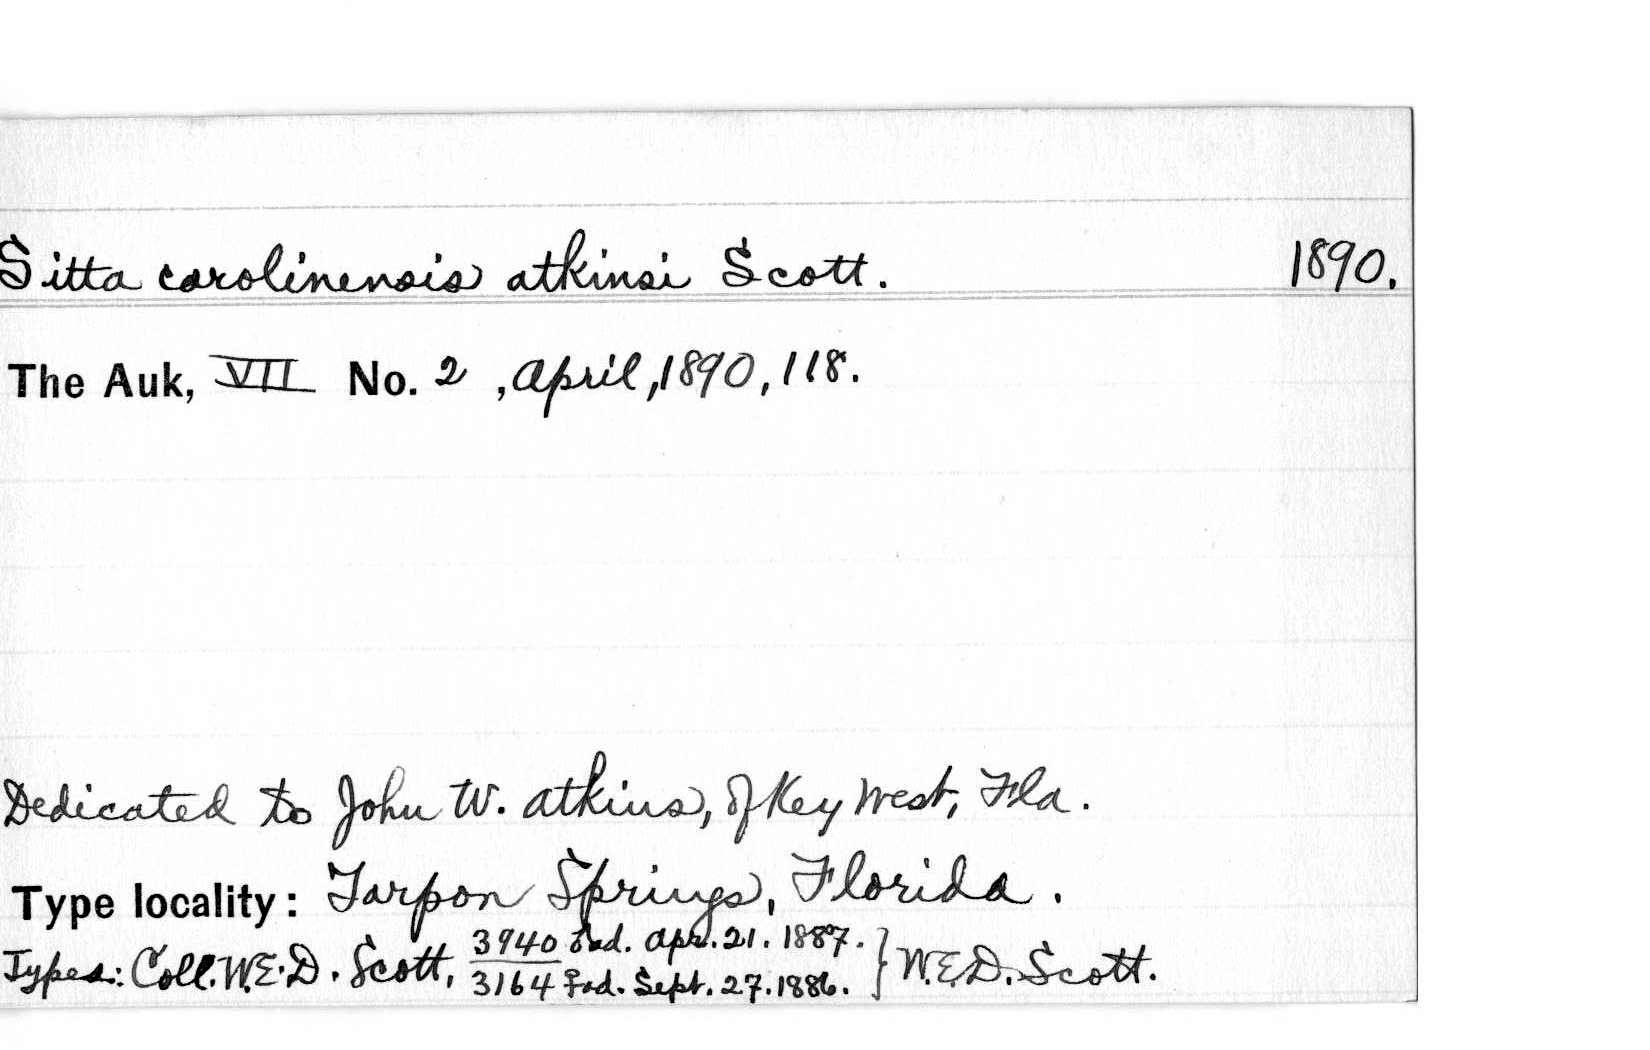 Sitta carolinensis atkinsi Scott. 1890.
The Auk, VII No. 2, April, 1890, 118.
Dedicated to John W. Atkins, of Key West, Fla.
Type locality: Tarpon Springs, Florida.
Types: Coll. W.E.D. Scott, 3940 ♂ ad. Apr. 21. 1887. } W.E.D. Scott.
3164 ♀ ad. Sept. 27. 1886.